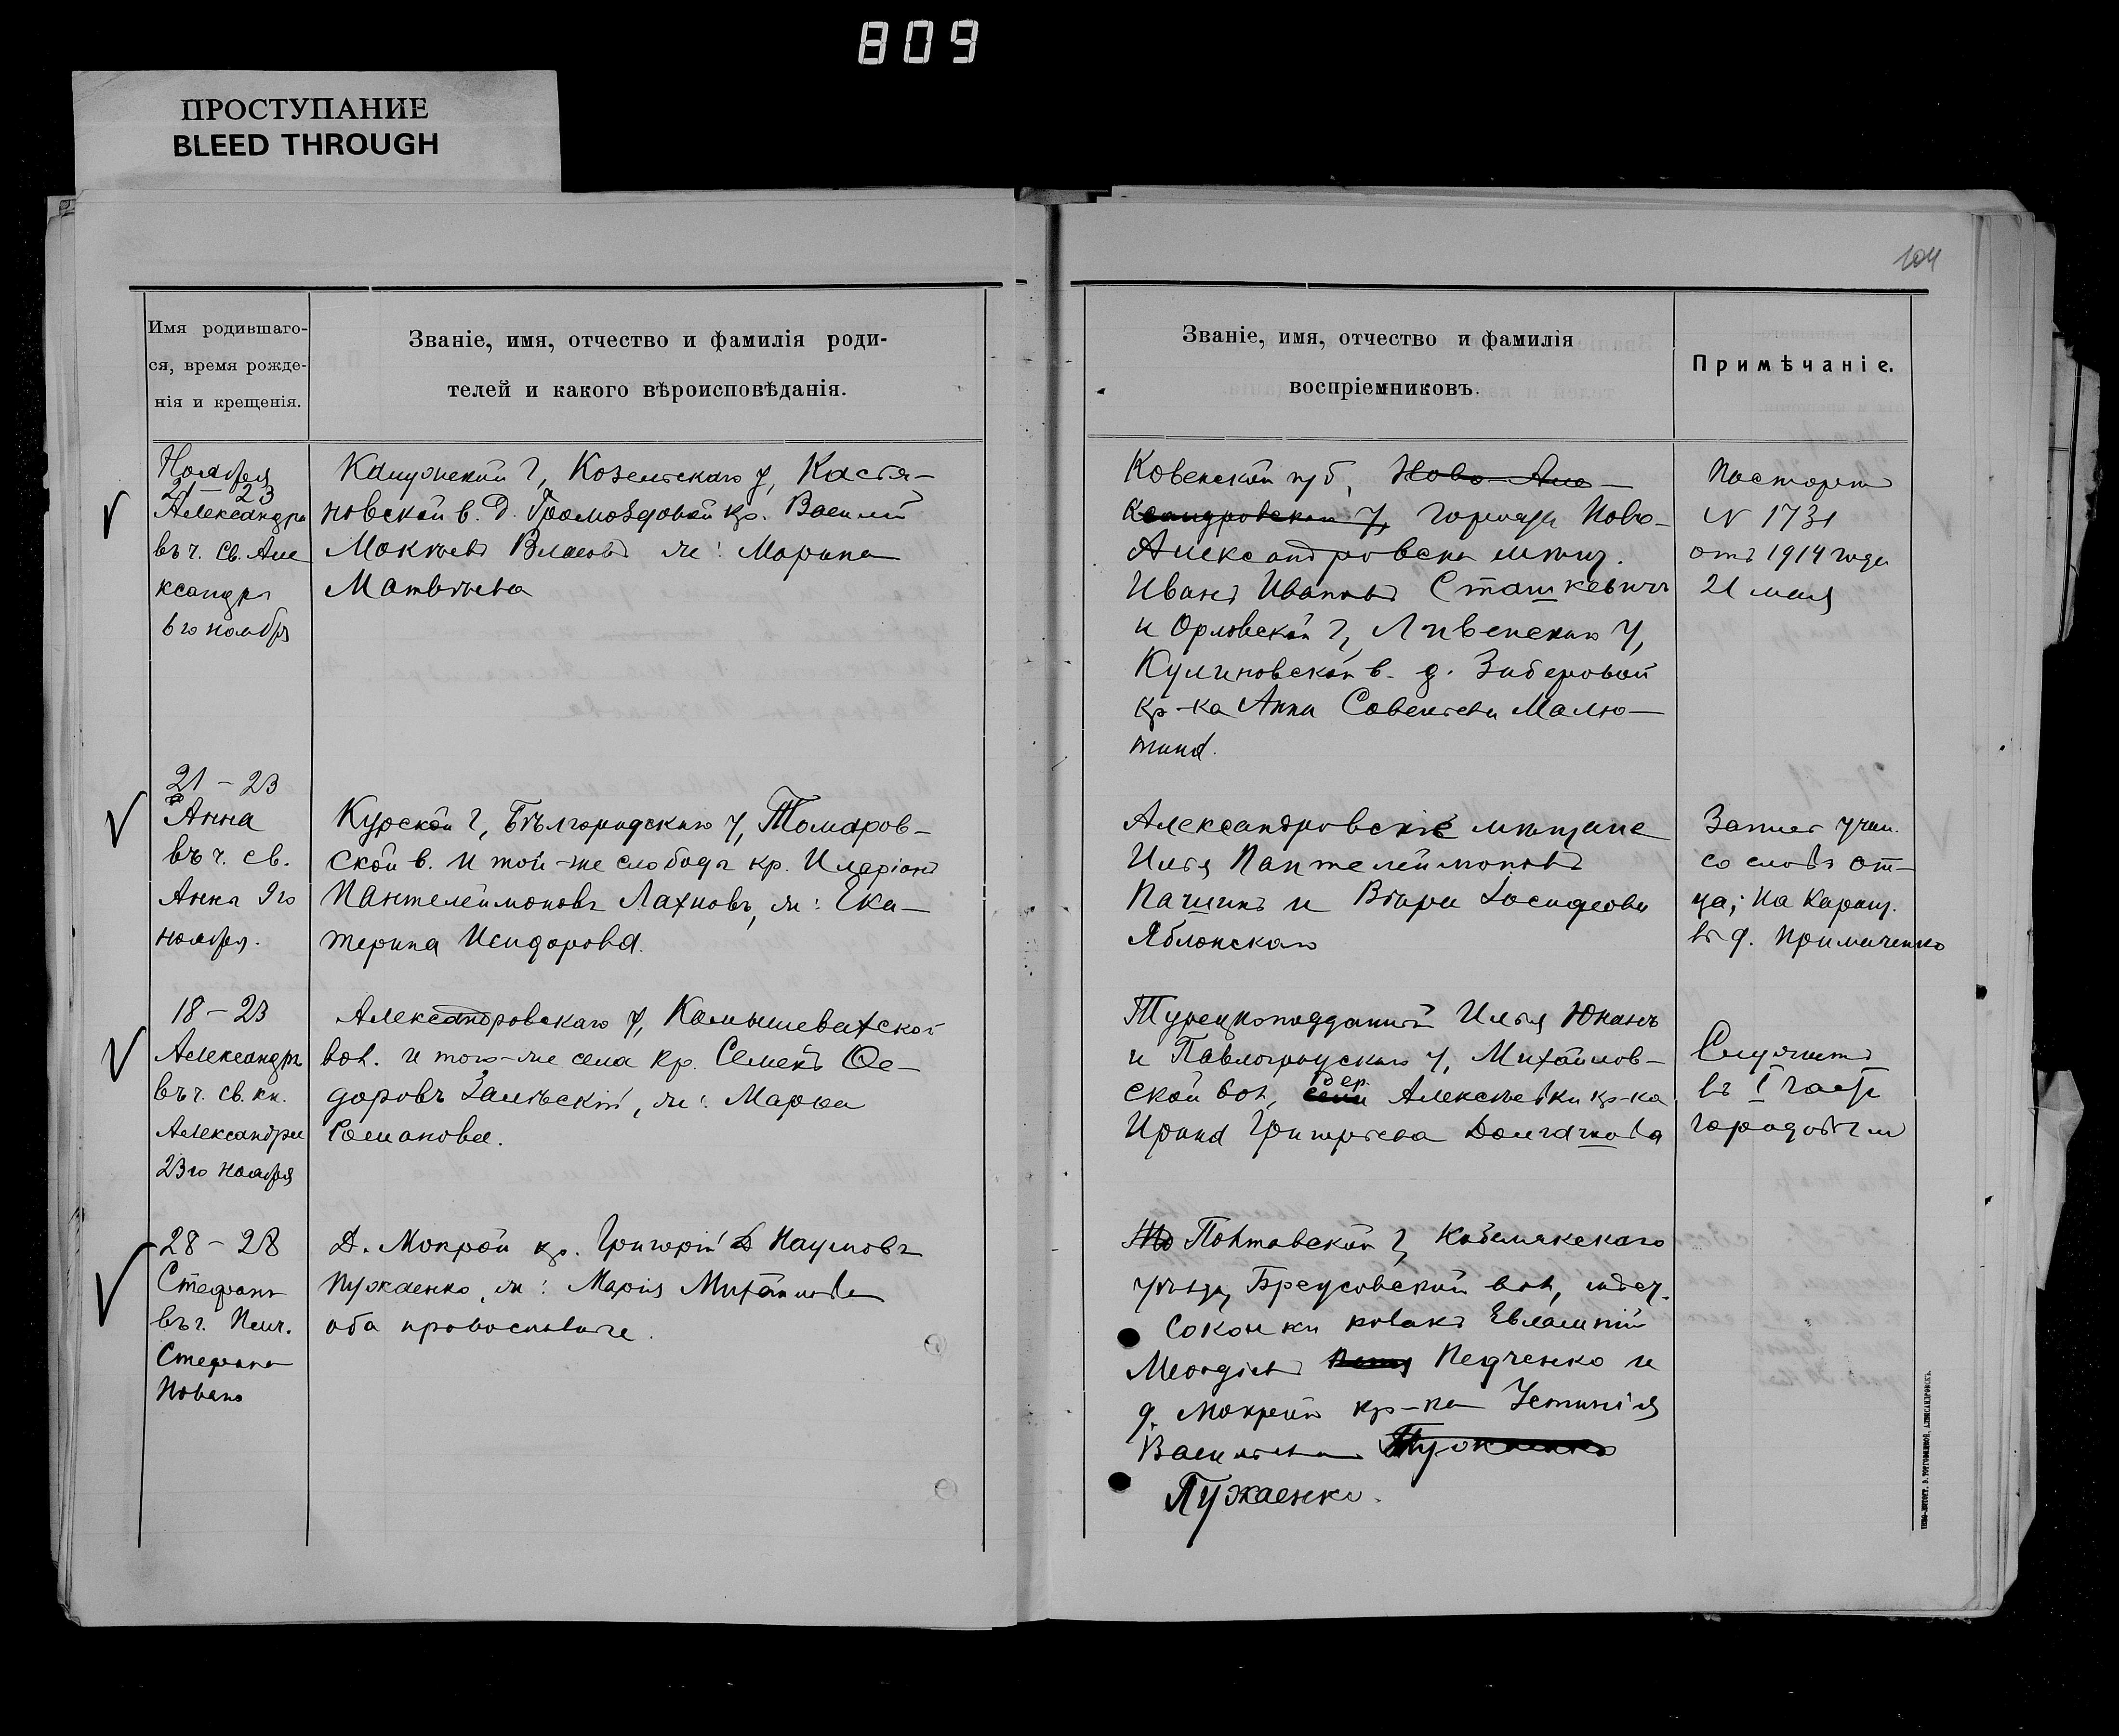 809
ПРОСТУПАНИЕ
BLEED THROUGH
104
Имя родившаго-
ся, время рожде-
нія и крещенія.
Званіе, имя, отчество и фамилія роди-
телей и какого вѣроисповѣданія.
Званіе, имя, отчество и фамилія
воспріемниковъ.
Примѣчаніе.
Ноября
21 – 23
Александръ
въ ч. св. Але
ксандра
6го ноября
Калужской г, Козельскаго у, Кастя-
новской в. д. Громоздовой кр. Василій
Мокіевъ Власовъ ж: Марина
Матвѣева
Ковенской губ, Ново-Але-
ксандровскаго у, города Ново-
Александровска мѣщ.
Иванъ Ивановъ Сташкевичъ
и Орловской г, Ливенскаго у,
Кулиновской в. д. Зиберовой
кр-ка Анна Савельева Малю-
тина.
Паспортъ
№ 1731
отъ 1914 года
21 мая
21 – 23
Анна
въ ч. св.
Анна 9го
ноября.
Курской г, Бѣлгородскаго у, Томаров-
ской в. и той-же слободы кр. Иларіонъ
Пантелеймоновъ Лахновъ, ж: Ека-
терина Исидорова.
Александровскіе мѣщане
Илья Пантелеймоновъ
Пачинъ и Вѣра
Яблонская
Запис учин.
со словъ от-
ца; на Каранд.
въ д. Примаченко
18 – 23
Александръ
въ ч. св. кн.
Александра
23го ноября
Александровскаго у, Камышеватской
вол. и того-же села кр. Семенъ Ѳе-
доровъ Залѣвскій, ж: Марѳа
Романова.
Турецкоподданный Илья Юканъ
и Павлоградскаго у, Михайлов-
ской вол, дер. села Алексѣевки кр-ка
Ирина Григорьева Долгачкова
Служитъ
въ I части
городовымъ
28 – 28
Стефанъ
въ ч. Пмч.
Стефана
Новаго
Д. Мокрой кр. Григорій Наумовъ
Пужаенко, ж: Марія Михайлова
оба православные.
Полтавской г, Кобелякскаго
уѣзда, Бреусовской вол,
Соколки козакъ Евлампій
Педченко и
д. Мокрой кр-ка Устинія
Васильева Пужаенко
Пужаенко.